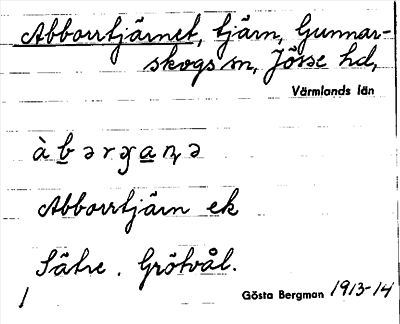 Abborrtjärnet, tjärn, Gunnar-
skogs sn, Jösse hd,
Värmlands län
Abborrtjärn ek
Sätre. Grötvål.
1
Gösta Bergman 1913-14